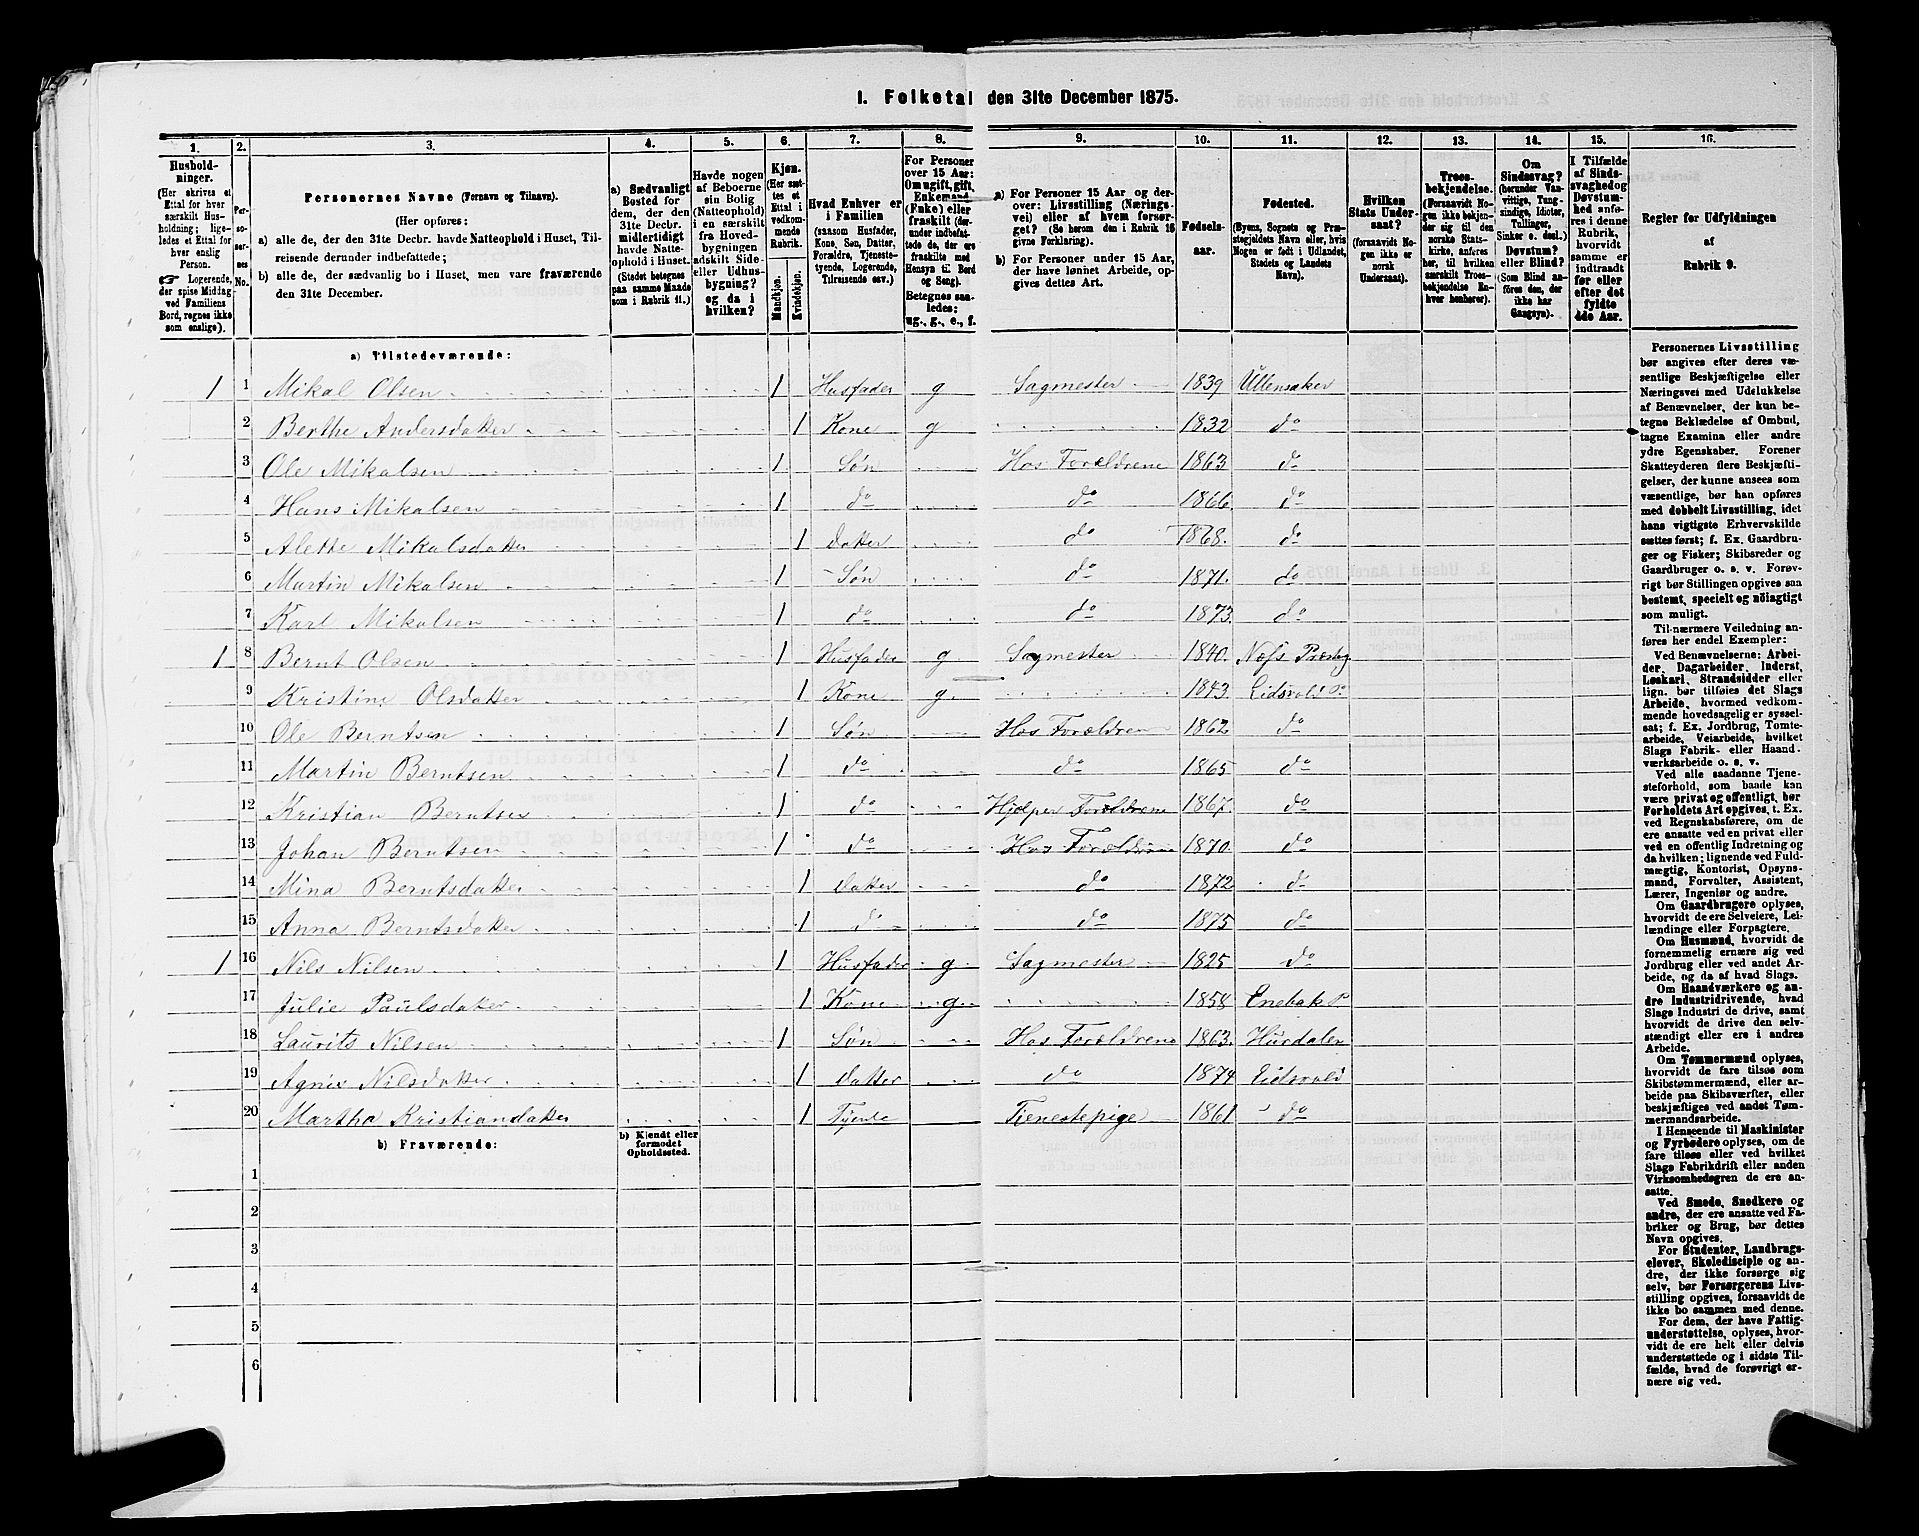 I. Folketal den 31te December 1875.
1. 2. 3. 4. 5. 6. 7. 8. 9. 10. 11. 12. 13. 14. 15. 16.
Husholdninger.
(Her skrives et Ettal for hver særskilt Husholdning; ligeledes et Ettal for hver enslig Person.
☞ Logerende, der spise Middag ved Familiens Bord, regnes ikke som enslige).
Personernes No.
Personernes Navne (Fornavn og Tilnavn).
(Her opføres:
a) alle de, der den 31te Decbr. havde Natteophold i Huset, Tilreisende derunder indbefattede;
b) alle de, der sædvanlig bo i Huset, men vare fraværende den 31te December.
a) Sædvanligt Bosted for dem, der den 31te Decbr. midlertidigt havde Natteophold i Huset.
(Stedet betegnes paa samme Maade som i Rubrik 11.)
Havde nogen af Beboerne sin Bolig (Natteophold) i en særskilt fra Hovedbygningen adskilt Side- eller Udhusbygning? og da i hvilken?
Kjøn.
(Her sættes et Ettal i vedkommende Rubrik.
Mandkjøn.
Kvindekjøn.
Hvad Enhver er i Familien
(saasom Husfader, Kone, Søn, Datter, Forældre, Tjenestetyende, Logerende, Tilreisende osv.)
For Personer over 15 Aar: Om ugift, gift, Enkemand (Enke) eller fraskilt (herunder indbefattede de, der ere fraskilte med Hensyn til Bord og Seng).
Betegnes saaledes: ug., g., e., f.
a) For Personer 15 Aar og derover: Livsstilling (Næringsvei) eller af hvem forsørget? (Se herom den i Rubrik 16 givne Forklaring).
b) For Personer under 15 Aar, der have lønnet Arbeide, opgives dettes Art.
Fødselsaar.
Fødested.
(Byens, Sognets og Præstegjeldets Navn eller, hvis Nogen er født i Udlandet, Stedets og Landets Navn).
Hvilken Stats Undersaat?
(forsaavidt Nogen ikke er norsk Undersaat).
Troesbekjendelse.
(Forsaavidt Nogen ikke bekjender sig til den norske Statskirke, anføres her, til hvilken særskilt Troesbekjendelse Enhver henhører).
Om Sindssvag? (herunder Vanvittige, Tungsindige, Idioter, Tullinger, Sinker o. desl.) Døvstum? eller Blind? (Som Blind anføres den, der ikke har Gangsyn).
I Tilfælde af Sindssvaghed og Døvstumhed anføres i denne Rubrik, hvorvidt samme er indtraadt før eller efter det fyldte 4de Aar.
Regler for Udfyldningen af Rubrik 9.
a) Tilstedeværende:
1 1 Mikal Olsen 1 Husfader g Sagmester 1839 Ullensaker
2 Berthe Andersdatter 1 Kone g 1832 do
3 Ole Mikalsen 1 Søn Hos Forældrene 1863 do
4 Hans Mikalsen 1 do do 1866. do
5 Alette Mikalsdatter 1 Datter do 1868. do
6 Martin Mikalsen 1 Søn do 1871. do
7 Karl Mikalsen 1 do do 1873. do
1 8 Bernt Olsen 1 Husfader g Sagmester 1840. Næs Præstg
9 Kristine Olsdatter 1 Kone g. 1843. Eidsvold P.
10 Ole Berntsen 1 Søn Hos Forældren 1862 do
11 Martin Berntsen 1 do do 1865 do
12 Kristian Berntsen 1 do Hjelper Forældrene 1867. do
13 Johan Berntsen 1 do Hos Forældrene 1870. do
14 Mina Berntsdatter 1 Datter do 1872 do
15 Anna Berntsdatter 1 do do 1875 do
1 16 Nils Nilsen 1 Husfader g. Sagmester 1825 do
17 Julie Paulsdatter 1 Kone g. 1858 Enebak P
18 Laurits Nilsen 1 Søn Hos Forældrene 1863. Hurdalen
19 Agnis Nilsdatter 1 Datter do 1874 Eidsvold
20 Martha Kristiansdatter 1 Tjente Tienestepige 1861 do
b) Fraværende:
b) Kjendt eller formodet Opholdssted.
1
2
3
4
5
6
Personernes Livsstilling bør angives efter deres væsentlige Beskjæftigelse eller Næringsvei med Udelukkelse af Benævnelser, der kun betegne Beklædelse af Ombud, tagne Examina eller andre ydre Egenskaber. Forener Skatteyderen flere Beskjæftigelser, der kunne ansees som væsentlige, bør han opføres med dobbelt Livsstilling, idet hans vigtigste Erhvervskilde sættes først; f. Ex. Gaardbruger og Fisker; Skibsreder og Gaardbruger o. s. v. Forøvrigt bør Stillingen opgives saa bestemt, specielt og nøiagtigt som muligt.
Til nærmere Veiledning anføres her endel Exempler:
Ved Benævnelserne: Arbeider, Dagarbeider, Inderst, Løskarl, Strandsidder eller lign. bør tilføies det Slags Arbeide, hvormed vedkommende hovedsagelig er sysselsat; f. Ex. Jordbrug, Tomtearbeide, Veiarbeide, hvilket Slags Fabrik- eller Haandværksarbeide o. s. v.
Ved alle saadanne Tjenesteforhold, som baade kan være privat og offentligt, bør Forholdets Art opgives, t. Ex. ved Regnskabsførere, om de ere ansatte ved en privat eller ved en offentlig Indretning og da hvilken; lignende ved Fuldmægtig, Kontorist, Opsynsmand, Forvalter, Assistent, Lærer, Ingeniør og andre.
Om Gaardbrugere oplyses, hvorvidt de ere Selveiere, Leilændinge eller Forpagtere.
Om Husmænd, hvorvidt de fornemmelig ernære sig ved Jordbrug eller ved andet Arbeide, og da af hvad Slags.
Om Haandværkere og andre Industridrivende, hvad Slags Industri de drive, samt hvorvidt de drive den selvstændigt eller ere i andres Arbeide.
Om Tømmermænd oplyses, hvorvidt de fare tilsøs som Skibstømmermænd, eller arbeide paa Skibsværfter, eller beskjæftiges ved andet Tømmermandsarbeide.
I Henseende til Maskinister og Fyrbødere oplyses, om de fare tilsøs eller ved hvilket Slags Fabrikdrift eller anden Virksomhedsgren de ere ansatte.
Ved Smede, Snedkere og andre, der ere ansatte ved Fabriker og Brug, bør dettes Navn opgives.
For Studenter, Landbrugselever, Skoledisciple og andre, der ikke forsørge sig selv, bør Forsørgerens Livsstilling opgives, forsaavidt de ikke bo sammen med denne.
For dem, der have Fattigunderstøttelse, oplyses, hvorvidt de ere helt eller delvis understøttede og i sidste Tilfælde, hvad de forøvrigt ernære sig ved.